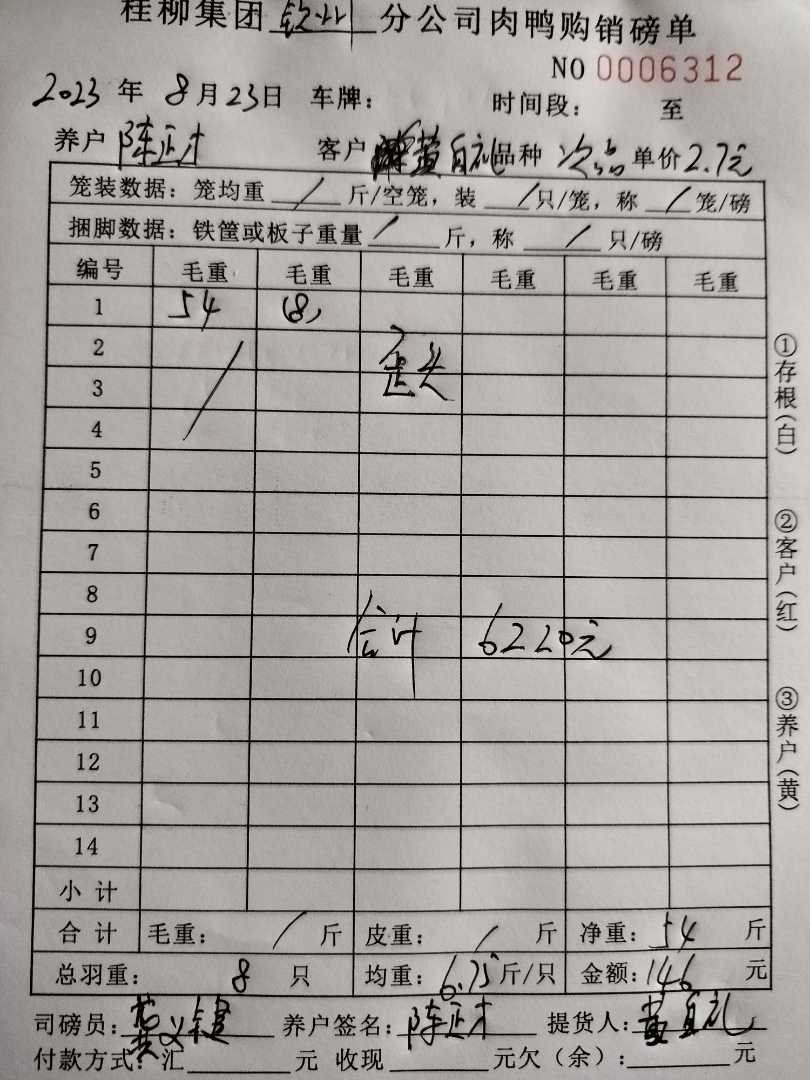 桂柳集团钦州分公司肉鸭购销磅单
NO 0006312
2023年8月23日 车牌: 时间段: 至
养户 陈正才 客户 黄自礼 品种 次品 单价 2.7元
笼装数据:笼均重 / 斤/空笼,装 / 只/笼,称 / 笼/磅
捆脚数据:铁筐或板子重量 / 斤,称 / 只/磅
编号 毛重 毛重 毛重 毛重 毛重 毛重
1 54 (8)
2 歪头
3
4
5
6
7
8
9 合计 6220元
10
11
12
13
14
小计
合计 毛重: / 斤 皮重: / 斤 净重: 54 斤
总羽重: 8 只 均重: 6.75 斤/只 金额: 146 元
司磅员: 养户签名: 陈正才 提货人: 黄自礼
付款方式: 汇 元 收现 元欠(余): 元
①存根(白)
②客户(红)
③养户(黄)